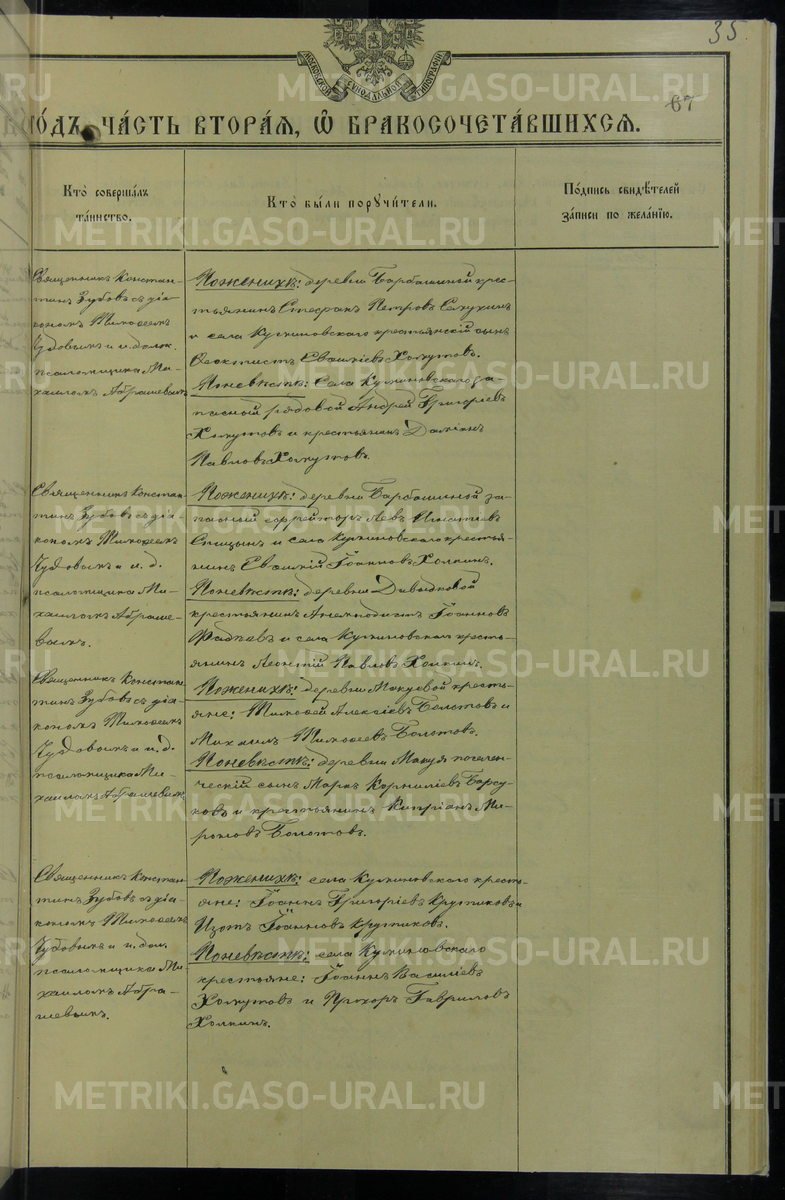 35
67
МОСКОВСКОЙ СѴНОДАЛЬНОЙ ТИПОГРАФІИ
ГОДЪ, ЧА́СТЬ ВТОРА́Я, Ѡ҆ БРАКОСОЧЕТА́ВШИХСѦ.
Кто̀ соверша́лъ
та́инство.
Кто̀ бы́ли порꙋчи́тели.
По́дпись свидѣ́телей
за́писи по жела́нїю.
Священникъ Констан-
тинъ Зубовъ съ діа
кономъ Тимофеемъ
Чудовымъ и и. долж.
псаломщика Ми-
хаиломъ Абрашевымъ
По женихѣ: деревни Барбашиной крес-
тьянинъ Стефанъ Петровъ
и села Кузминовскаго крестьянскій сынъ
Феоктистъ Хомутовъ.
По невѣстѣ: Села Кузминовскаго за-
пасный рядовой Андрей Григорьевъ
Хомутовъ и крестьянинъ Даміанъ
Павловъ Хомутовъ.
Священникъ Констан-
тинъ Зубовъ съ діа-
кономъ Тимофеемъ
Чудовымъ и и. д.
псаломщика Ми-
хаиломъ Абраше-
вымъ.
По женихѣ: деревни Барбашиной за-
пасный ефрейторъ Левъ
Спицынъ и села Кузминовскаго крестья-
нинъ Іоанновъ Холкинъ.
По невѣстѣ: деревни Давыдковой
крестьянинъ Анемподистъ Іоанновъ
Фадѣевъ и села Кузминовскаго кресть-
янинъ Леонтій Павловъ Холкинъ.
Священникъ Констан
тинъ Зубовъ съ діа-
кономъ Тимофеемъ
Чудовымъ и и. д.
псаломщика Ми-
хаиломъ Абрашевымъ
По женихѣ: деревни Макуевой кресть-
яне: Тимофей Алексіевъ Болотовъ и
Михаилъ Тимофеевъ Болотовъ.
По невѣстѣ: деревни поселен-
ческій сынъ Марко Корниліевъ Барсу
ковъ и крестьянинъ Кипріанъ Ми-
роновъ Болотовъ.
Священникъ Констан
тинъ Зубовъ съ діа-
кономъ Тимофеемъ
Чудовымъ и и. дол.
псаломщика Ми-
хаиломъ Абра-
шевымъ.
По женихѣ: села Кузминовскаго кресть-
яне: Іоаннъ Григоріевъ Крутиковъ и
Изотъ Іоанновъ Крутиковъ.
По невѣстѣ: села Кузминовскаго
крестьяне: Іоаннъ Василіевъ
Хомутовъ и Прохоръ Гавриловъ
Холкинъ.
METRIKI.GASO-URAL.RU